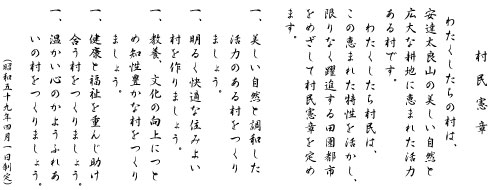 村民憲章
わたくしたちの村は、
安達太良山の美しい自然と
広大な耕地に恵まれた活力
ある村です。
わたくしたち村民は、
この恵まれた特性を活かし、
限りなく躍進する田園都市
をめざして村民憲章を定め
ます。
一、美しい自然と調和した
活力のある村をつくり
ましょう。
一、明るく快適な住みよい
村を作りましょう。
一、教養、文化の向上につと
め知性豊かな村をつくり
ましょう。
一、健康と福祉を重んじ助け
合う村をつくりましょう。
一、温かい心のかようふれあ
いの村をつくりましょう。
（昭和五十九年四月一日制定）